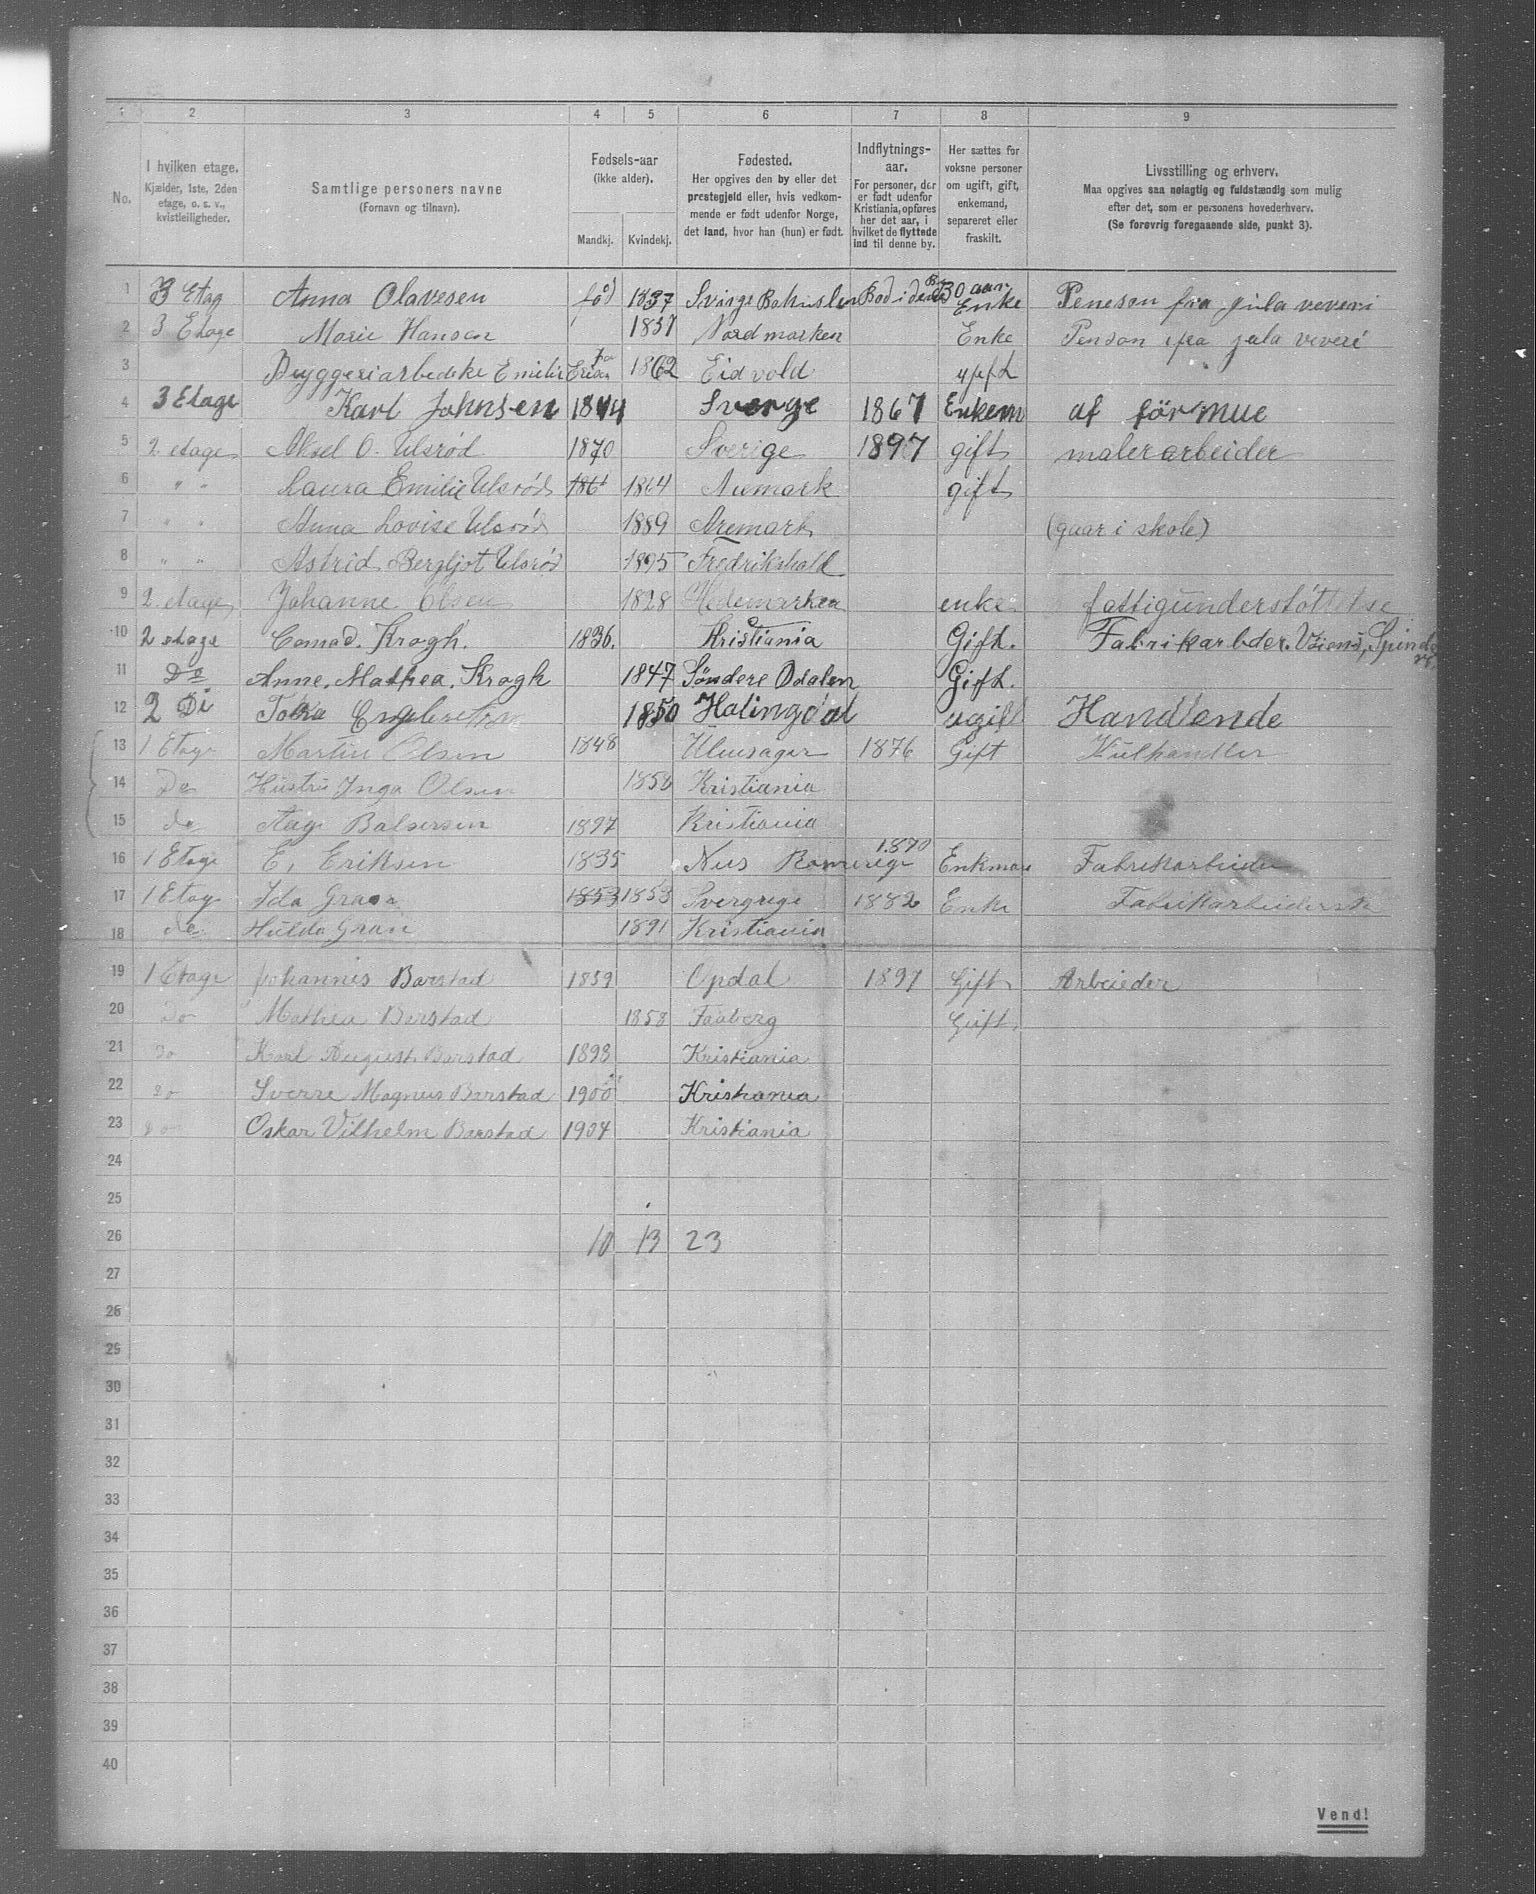 1 2 3 4 5 6 7 8 9
No.
I hvilken etage.
Kjælder, 1ste, 2den
etage, o. s. v.,
kvistleiligheder.
Samtlige personers navne
(Fornavn og tilnavn).
Fødsels-aar
(ikke alder).
Mandkj. Kvindekj.
Fødested.
Her opgives den by eller det
prestegjeld eller, hvis vedkom-
mende er født udenfor Norge,
det land, hvor han (hun) er født.
Indflytnings-
aar.
For personer, der
er født udenfor
Kristiania, opføres
her det aar, i
hvilket de flyttede
ind til denne by.
Her sættes for
voksne personer
om ugift, gift,
enkemand,
separeret eller
fraskilt.
Livsstilling og erhverv.
Maa opgives saa nøiagtig og fuldstændig som mulig
efter det, som er personens hovederhverv.
(Se forøvrig foregaaende side, punkt 3).
1 3 Etag Anna Olavesen fød 1837 Svirge Bahuslen Bod i denne By 30 aar. Enke Peneson fra jula veveri
2 3 Etage Marie Hansen 1837 Nordmarken Enke Penson ifra jula veveri
3 Bryggeriarbedske Emilie 1862 Eidvold
4 3 Etage Karl Johnsen 1844 Sverge 1867 Enkem af förmue
5 2 etage Aksel O. Ulsrød 1870 Sverige 1897 gift malerarbeider
6 " " Laura Emilie Ulsrød 1861 1864 Aremark gift
7 " " Anna Lovise Ulsrød 1889 Aremark (gaar i skole)
8 " " Astrid Bergljot Ulsrød 1895 Fredrikshald
9 2 etage Johanne Olsen 1828 Hedemarken enke fattigunderstøttelse
10 2 etage Conrad. Krogh. 1836. Kristiania Gift. Fabrikarbder. Vøiens, Spind
11 Do Anne. Mathea. Krogh 1847 Søndere Odalen Gift.
12 2 Di Tora 1850 Halingdal ugift Handlende
13 1 Etage Martin Olsen 1848 Ulensager 1876 Gift Kulhandler
14 Do Hustru Inga Olsen 1858 Kristiania
15 do Aage Balsersen 1897 Kristiania
16 1 Etage E, Eriksen 1835 Nes Romerige 1870 Enkman Fabrikarbeider
17 1 Etag Ida Gran 1853 1853 Svergrige 1882 Enke Fabrikarbeiderske
18 do Hulda Gran 1891 Kristiania
19 1 Etage Johannis Barstad 1859 Opdal 1897 Gift Arbeieder
20 Do Mathea Barstad 1858 Faaberg Gift.
21 Do Karl August Barstad 1893 Kristiania
22 Do Sverre Magnus Barstad 1900 Kristiania
23 Do Oskar Vilhelm Barstad 1904 Kristiania
24
25
26 10 13 23
27
28
29
30
31
32
33
34
35
36
37
38
39
40
Vend!